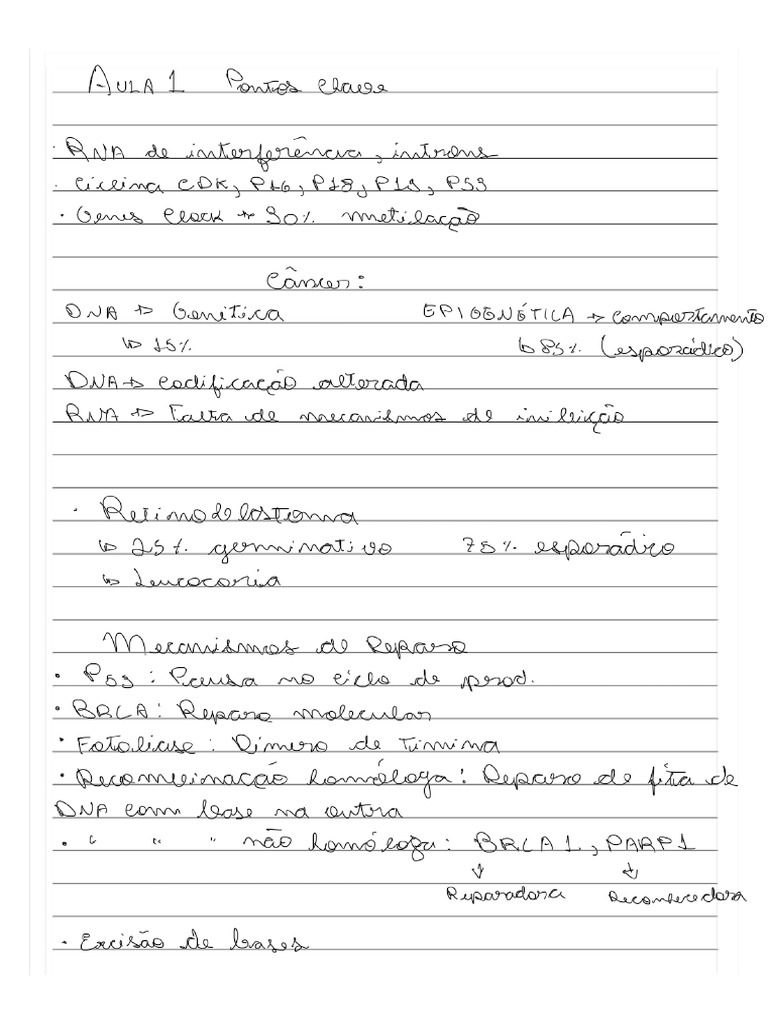 AULA 1 Pontos Chave
· RNA de interferência, introns
· Ciclina CDK, P16, P18, P15, P53
· Genes Clock → 90% metilação
Câncer:
DNA → Genética EPIGENÉTICA → comportamento
↳ 15% ↳ 85% (esporádico)
DNA → codificação alterada
RNA → Falta de mecanismos de inibição
· Retinoblastoma
↳ 25% germinativo 75% esporádico
↳ Leucocoria
Mecanismos de Reparo
· P53: Pausa no ciclo de prod.
· BRCA: Reparo molecular
· Fotoliase: Dímero de Timina
· Recombinação homóloga: Reparo de fita de
DNA com base na outra
· " " " não homóloga: BRCA1, PARP1
↓ ↓
Reparadora Reconhecedora
· Excisão de bases